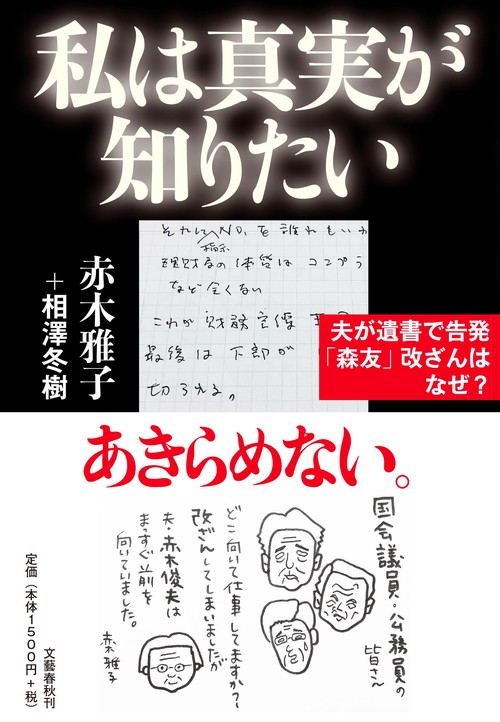 私は真実が
知りたい
赤木雅子
+相澤冬樹
それにNO.を誰れもいわ
指示
理財局の体質はコンプラ
など全くない
これが財務官僚
最後は下部が
切られる。
夫が遺書で告発
「森友」改ざんは
なぜ?
あきらめない。
国会議員・公務員の
皆さん
どこ向いて仕事してますか?
改ざんしてしまいましたが
夫・赤木俊夫は
まっすぐ前を
向いていました。
赤木雅子
定価(本体1500円+税)
文藝春秋刊